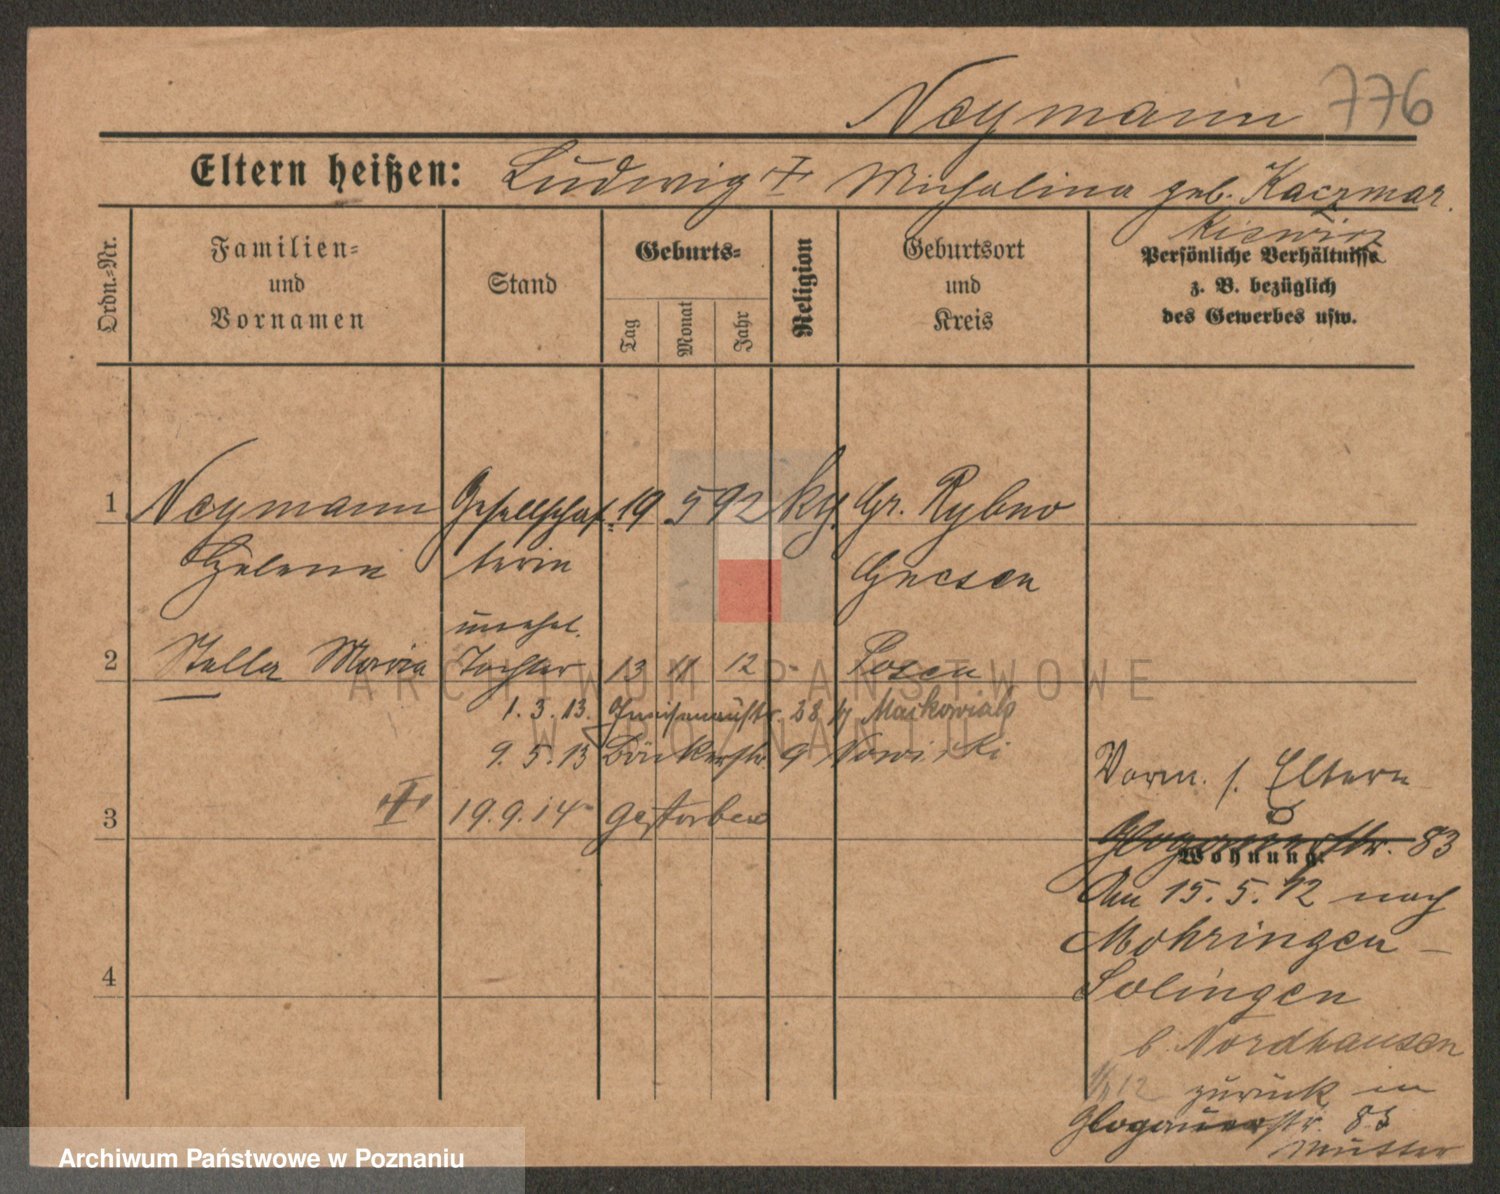 Noymann 776
Eltern heißen: Ludwig + Michalina geb. Kaczmar.
kiewicz
Ordn.-Nr.
Familien-
und
Vornamen
Stand
Geburts-
Tag
Monat
Jahr
Religion
Geburtsort
und
Kreis
Persönliche Verhältnisse
z. B. bezüglich
des Gewerbes usw.
1 Noymann Gesellschaf- 19 5 92 kt. Gr. Rybno
Helena terin Gnesen
unehel.
2 Stella Maria Tochter 13 11 12 - Posen
1. 3. 13. Gneisenaustr. 28 Maćkowiak
9. 5. 13 Bäckerstr. 9 Nowicki
Vorm. s. Eltern
3 "II" 19.9.14 gestorben
Glogauerstr. 83
Wohnung:
Am 15. 5. 12 nach
Mohringen -
4 Solingen
b. Nordhausen
12 zurück in
Glogauerstr. 83
Mutter
ARCHIWUM PAŃSTWOWE
W POZNANIU
Archiwum Państwowe w Poznaniu